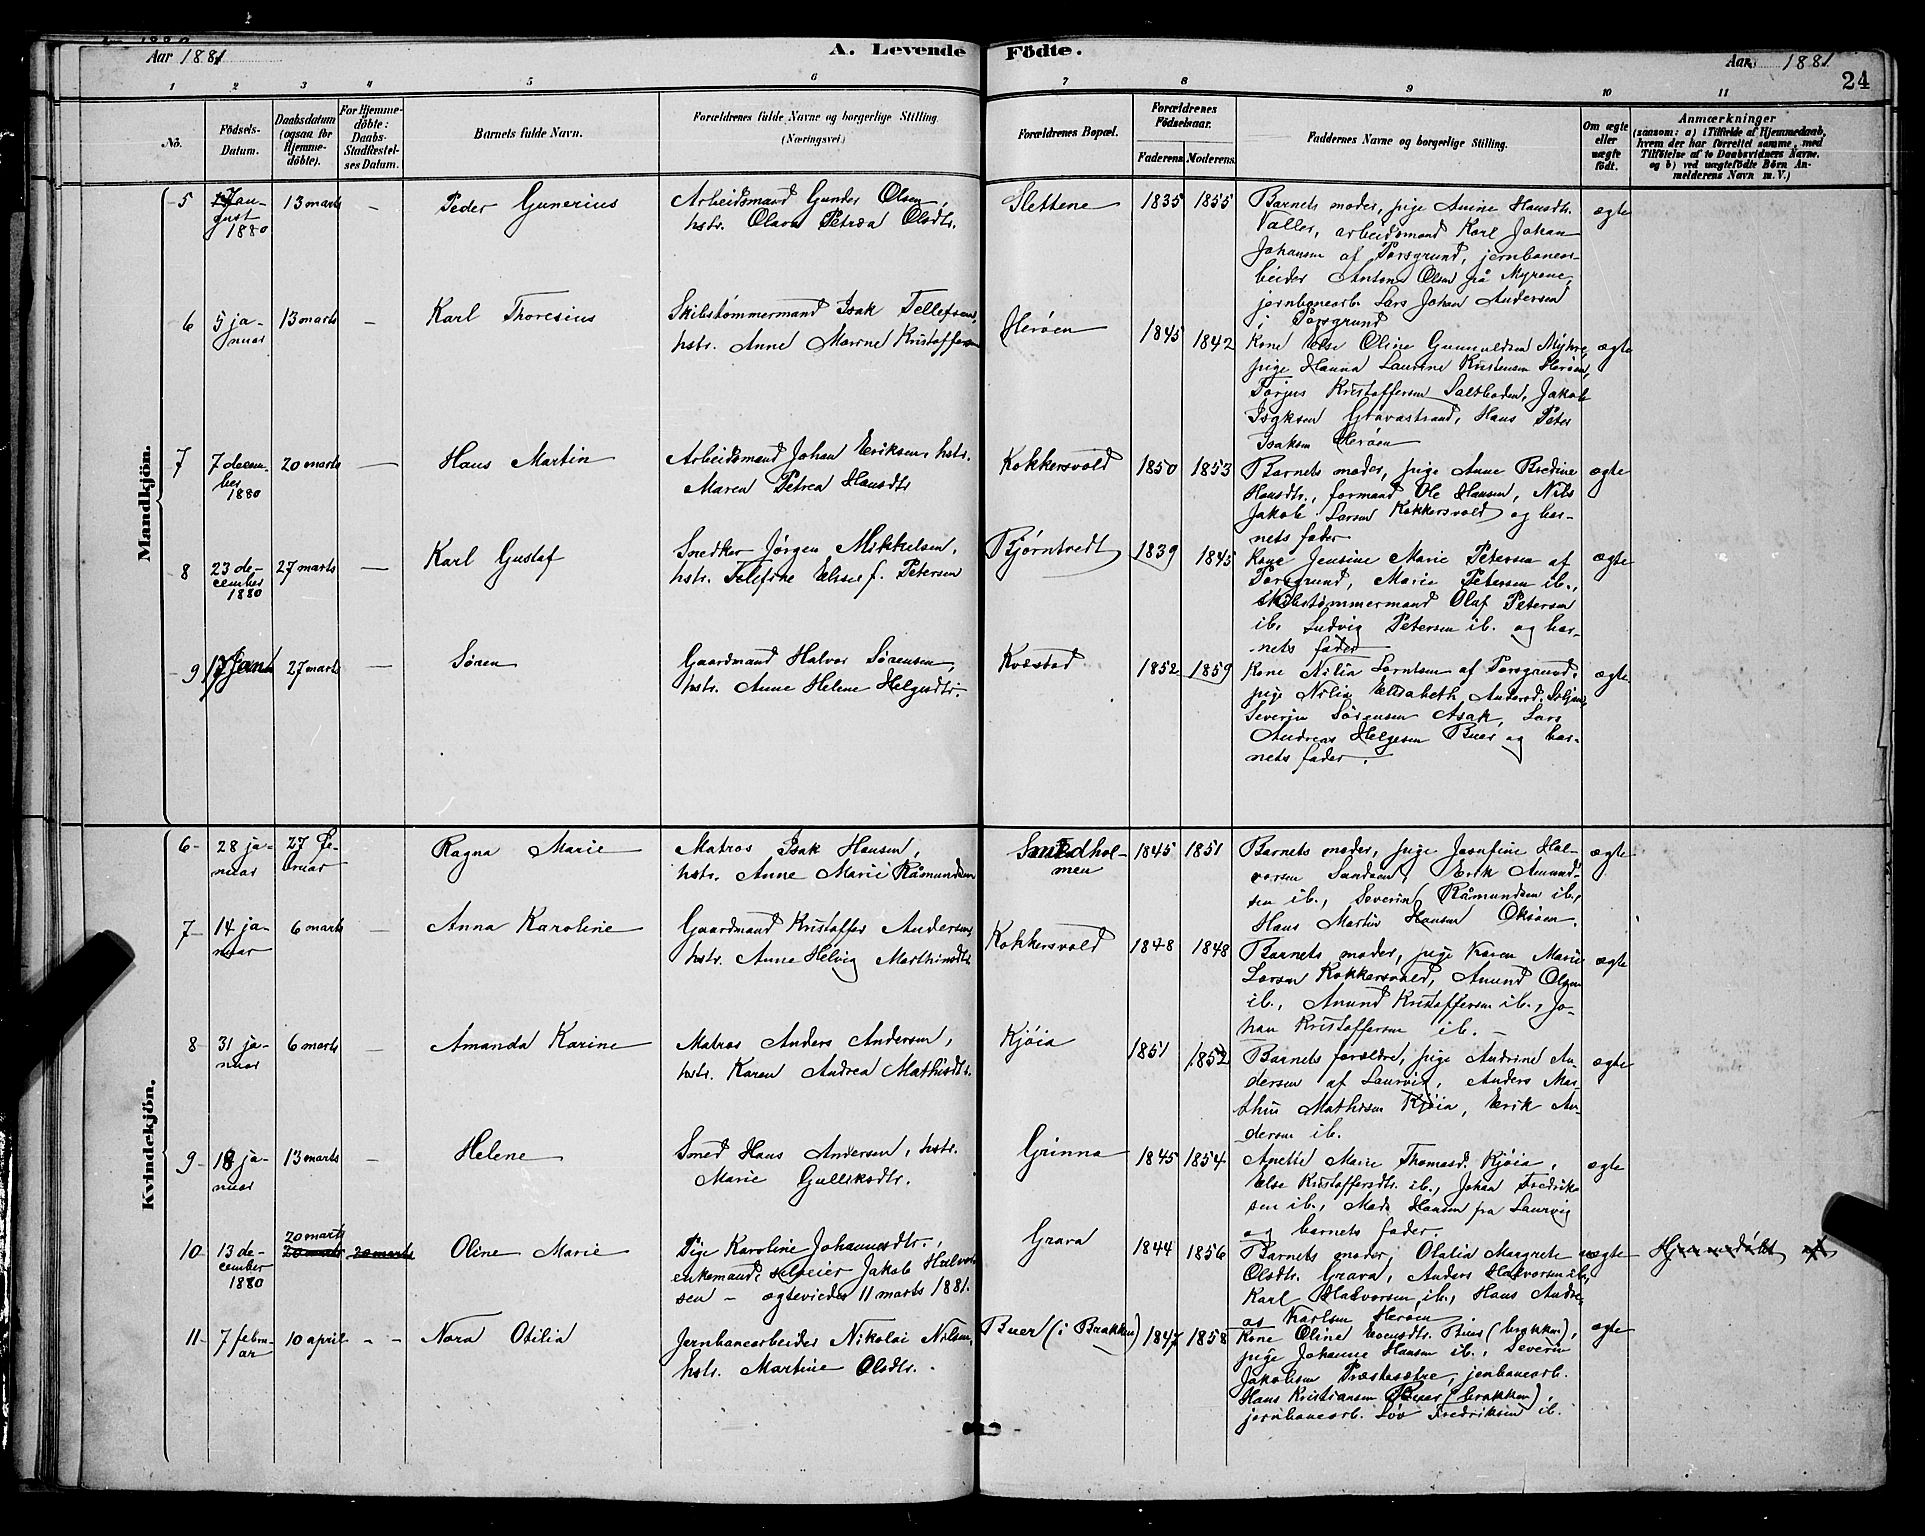 Aar 1881
A. Levende Födte.
Aar 1881
24
1 2 3 4 5 6 7 8 9 10 11
No.
Födsels-
Datum.
Daabsdatum
(ogsaa for
Hjemme-
döbte).
For Hjemme-
döbte:
Daabs-
Stadfæstel-
ses Datum.
Barnets fulde Navn.
Forældrenes fulde Navne og borgerlige Stilling
(Næringsvei)
Forældrenes Bopæl.
Forældrenes
Födselsaar.
Faderens Moderens
Faddernes Navne og borgerlige Stilling.
Om ægte
eller
uægte
født.
Anmærkninger
(saasom: a) i Tilfælde af Hjemmedaab,
hvem der har forrettet samme, med
Tilføielse af to Daabsvidners Navne.
og b) ved uægtefödte Börn An-
melderens Navn m. V.)
Mandkjön.
5
gust
1880
13 marts
Peder Gunerius
Arbeidsmand Gunder Olsen,
hstr. Olava Petrea Olsdtr.
Slettene
1835 1855
Barnets moder, pige Anine Hansdtr.
Valler, arbeidsmand Karl Johan
Johansen af Porsgrund, jernbanear-
beider Anton Olsen frå Myrene,
jernbanearb. Lars Johan Andersen
i Porsgrund
ægte
6
5 ja-
nuar
13 marts
Karl Thoresius
Skibstømmermand Isak Tellefsen,
hstr. Anne Marene Kristoffersen
Herøen
1845 1842
Kone Else Oline Gunnuldsen Myhre,
pige Hanna Laurine Kristensen Herøen,
Torjus Kristoffersen Saltboden, Jakob
Isaksen Gravastrand, Hans Peter
Isaksen Herøen
ægte
7
7 decem-
ber
1880
20 marts
Hans Martin
Arbeidsmand Johan Eriksen, hstr.
Maren Petrea Hansdtr
Kokkersvold
1850 1853
Barnets moder, pige Anne Bredine
Hansdtr., formand Ole Hansen, Nils
Jakob Larsen Kokkersvold og bar-
nets fader
ægte
8
23 de-
cember
1880
27 marts
Karl Gustaf
Snedker Jørgen Mikkelsen,
hstr. Telefine Elise f. Petersen
Bjørntvedt
1839 1845
Kone Jensine Marie Petersen af
Porsgrund, Marie Petersen ib.,
skibstømmermand Olaf Petersen
ib. Ludvig Petersen ib. og bar-
nets fader
ægte
9
27 marts
Søren
Gaardmand Halvor Sørensen,
hstr. Anne Helene Helgesdtr.
Kvæstad
1852 1859
Kone Nilia Lorntsen af Porsgrund,
pige Nilia Elisabeth
Severin Sørensen Asak, Lars
Andreas Helgesen Buer og bar-
nets fader.
ægte
Kvindekjön.
6
28 ja-
nuar
27 fe-
bruar
Ragna Marie
Matros Isak Hansen,
hstr. Anne Marie Råmundsen
Smedhol-
men
1845 1851
Barnets moder, pige Josefine Hal-
vorsen Sandøen, Erik Amund-
sen ib., Severin Råmundsen ib.,
Hans Martin Hansen Oksøen.
ægte
7
14 ja-
nuar
6 marts
Anna Karoline
Gaardmand Kristoffer Andersen,
hstr. Anne Helvig Marthinsdtr
Kokkersvold
1848 1848
Barnets moder, pige Karen Marie
Larsen Kokkersvold, Amund Olsen
ib., Amund Kristoffersen ib., Jo-
han Kristoffersen ib.
ægte
8
31 ja-
nuar
6 marts
Amanda Karine
Matros Anders Andersen,
hstr. Karen Andrea Mathisdtr.
Kjøia
1851 1852
Barnets forældre, pige Andrine An-
dersen af Laurvig, Anders Mar-
thin Mathisen Kjøia, Erik An-
dersen ib.
ægte
9
18 ja-
nuar
13 marts
Helene
Smed Hans Andersen, hstr.
Marie Gulliksdtr.
Grinna
1845 1854
Anette Marie Thomasd. Kjøia,
Else Kristoffersdtr. ib., Johan Fredrik-
sen ib., Mads Hansen fra Laurvig
og barnets fader.
ægte
10
13 de-
cember
1880
20 marts
20 marts
20 marts
Oline Marie
Pige Karoline Johannesdtr.,
enkemand, selveier Jakob Halvor-
sen – ægteviedes 11 marts 1881.
Grava
1844 1856
Barnets moder, Olalia Margrete
Olsdtr. Grava, Anders Halvorsen ib.,
Karl Halvorsen ib., Hans Andre-
as Karlsen Herøen
uægte
Hjemmedøbt
11
7 febru-
ar
10 april
Nora Otilia
Jernbanearbeider Nikolai Nilsen,
hstr. Martine Olsdtr.
Buer (i Brakken)
1847 1858
Kone Oline Evensdtr. Buer (brakken),
pige Johanne Hansen ib., Severin
Jakobsen Præstesætre, jernbanearb.
Hans Kristiansen Buer (brakken),
jernbanearb. Løv Fredriksen ib.
ægte